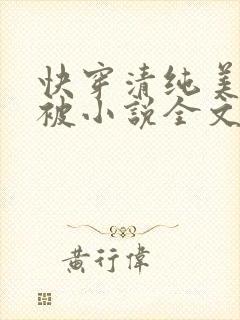 快穿清纯美
被小説全文
黄行偉